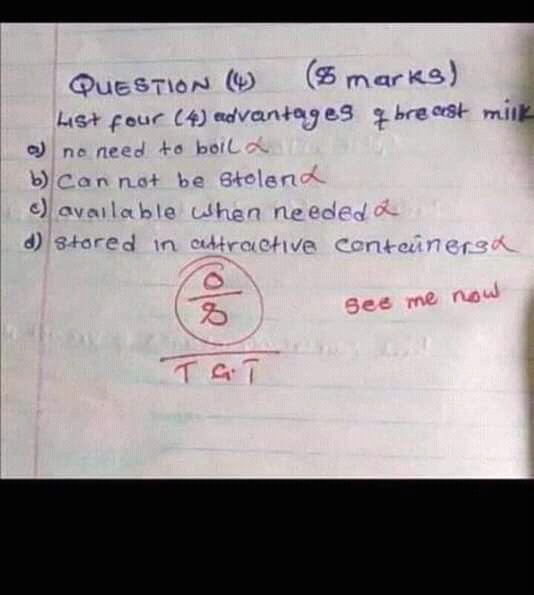 QUESTION (4) (8 marks)
List four (4) advantages of breast milk
a) no need to boil
b) can not be stolen
c) available when needed
d) stored in attractive containers
0
8
see me now
T G.T